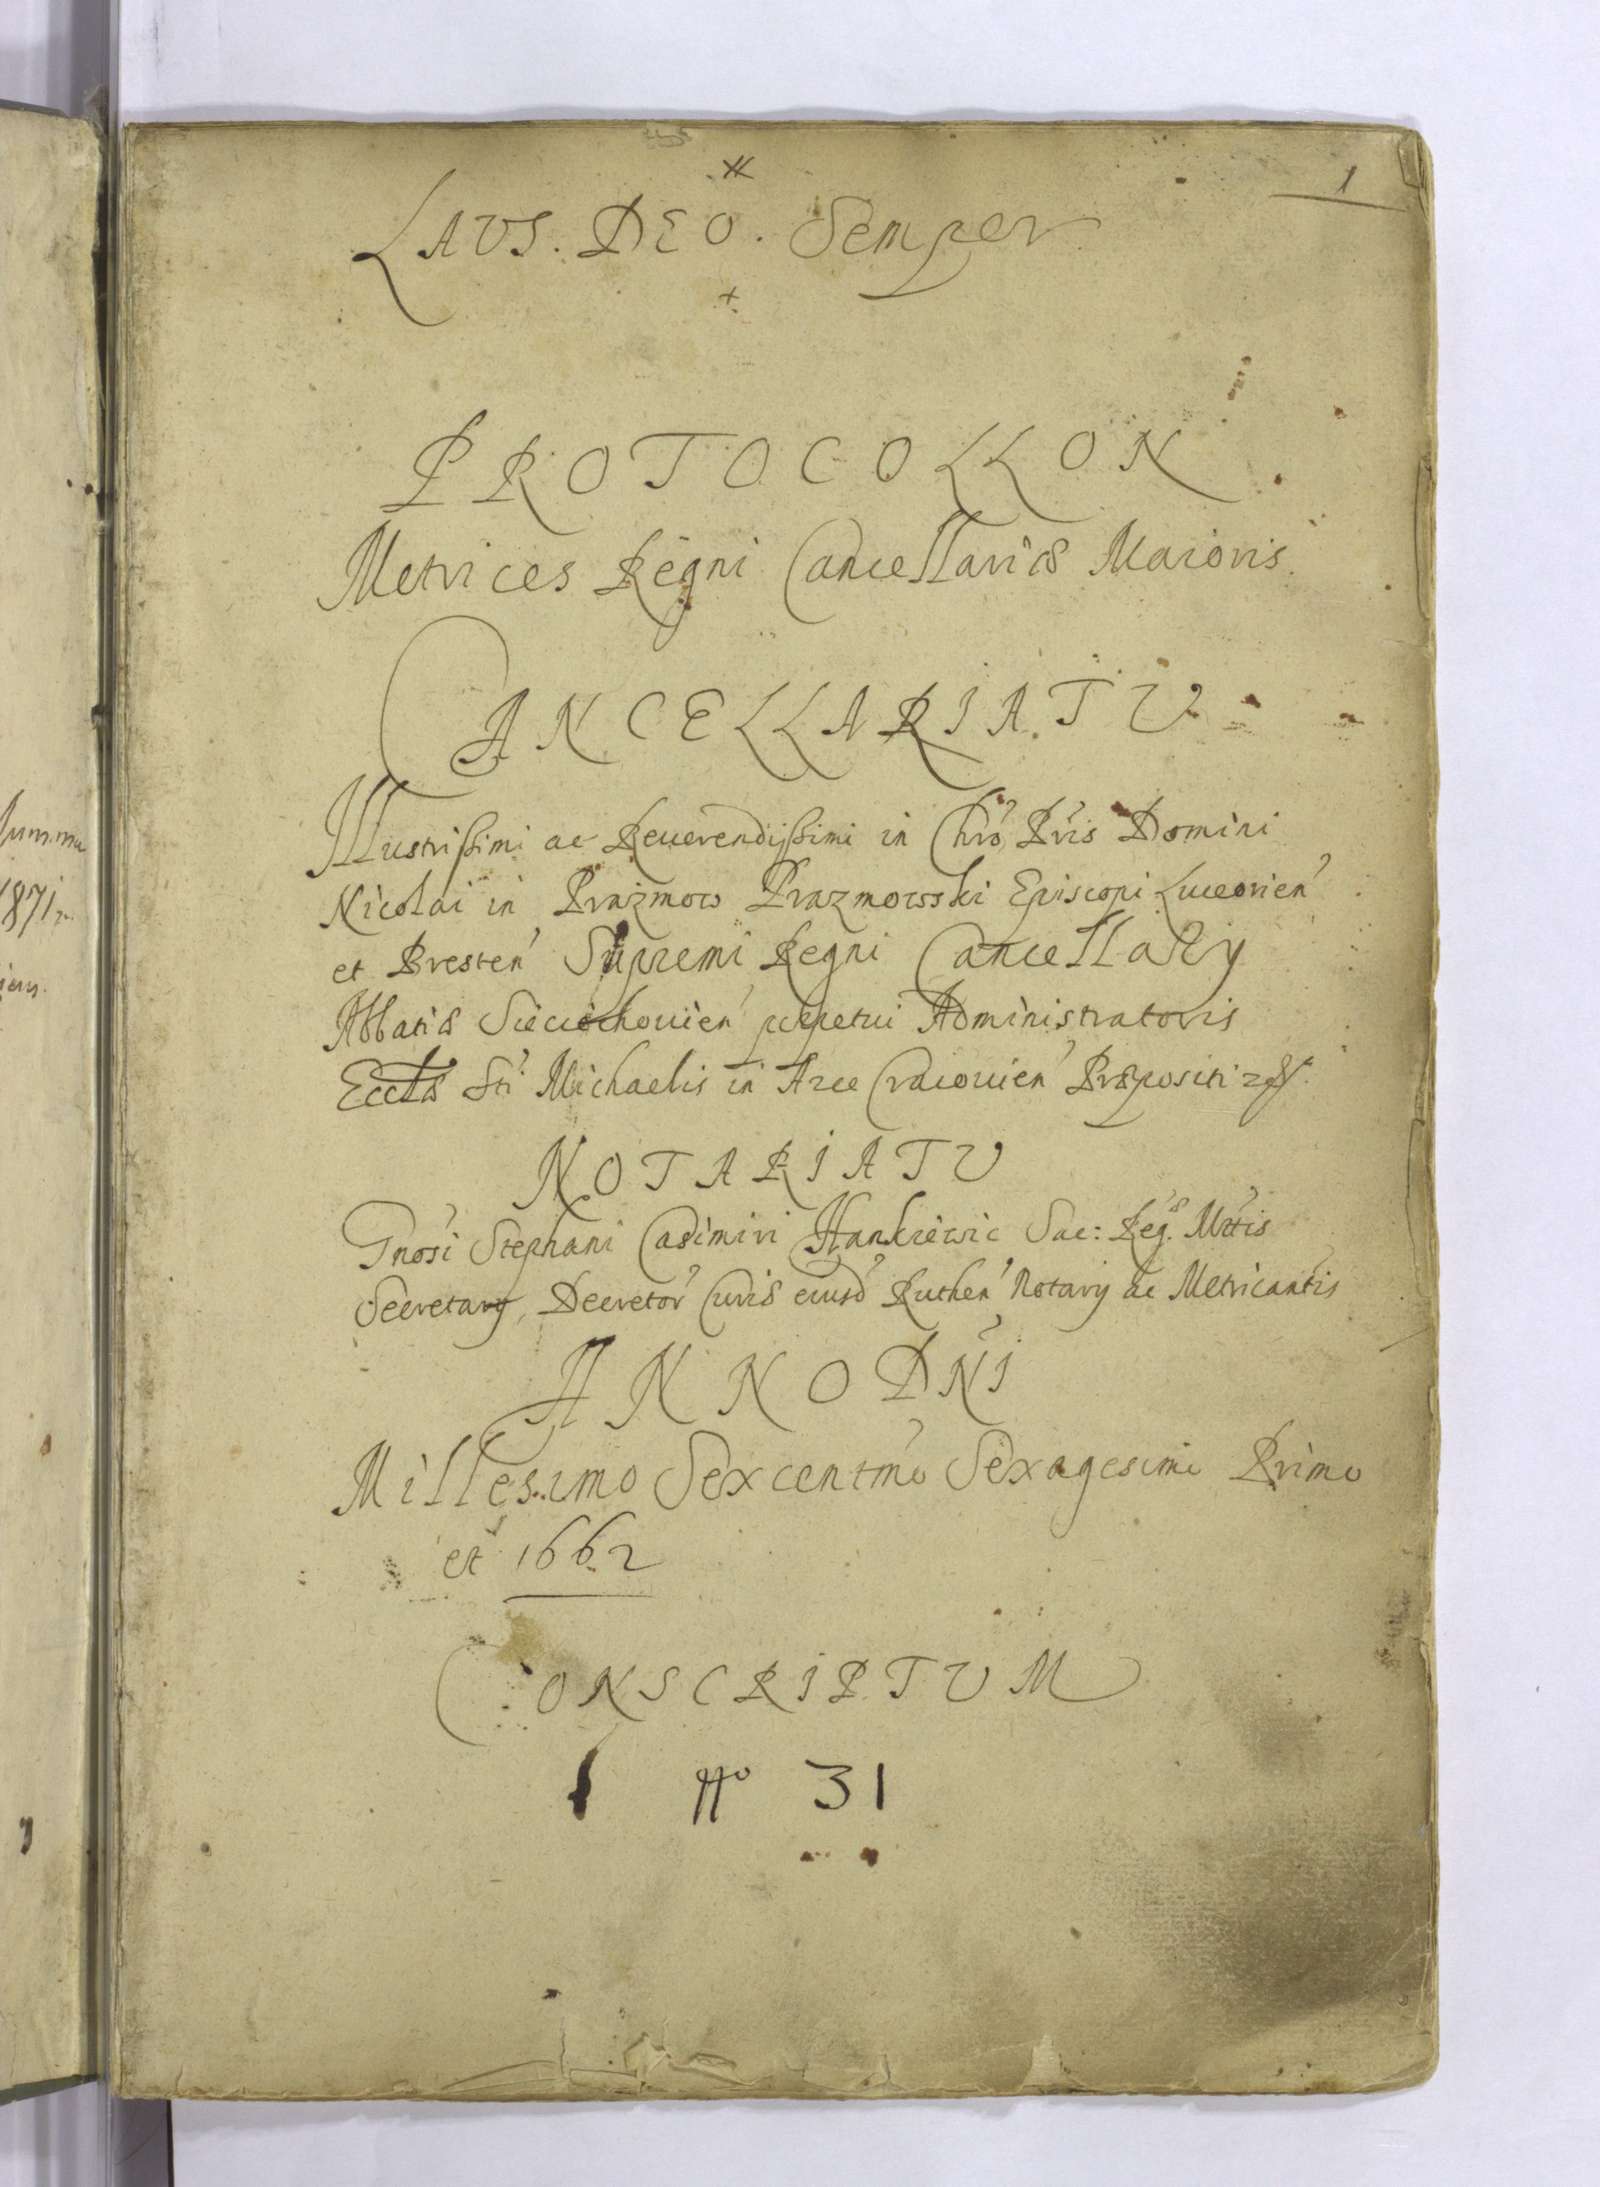 1
LAVS. DEO. Semper
PROTOCOLLON
Metrices Regni Cancellariæ Maioris
CANCELLARIATV
Illustrissimi ac Reuerendissimi in Chro Pris Domini
Nicolai in Prazmow Prazmowski Episcopi Luceorien
et Bresten Supremi Regni Cancellary
Abbatis Sieciechouien perpetui Administratoris
Eccliæ Sti Michaelis in Arce Cracouien Præpositi
NOTARIATV
Gnosi Stephani Casimiri Hankiewic Sac: Reg. Mttis
Secretarij, Decretor Curiæ eiusd Ruthen Notarij ac Metricantis
ANNO DNI
Millesimo Sexcentmo Sexagesimo Primo
et 1662
CONSCRIPTUM
No 31
1871